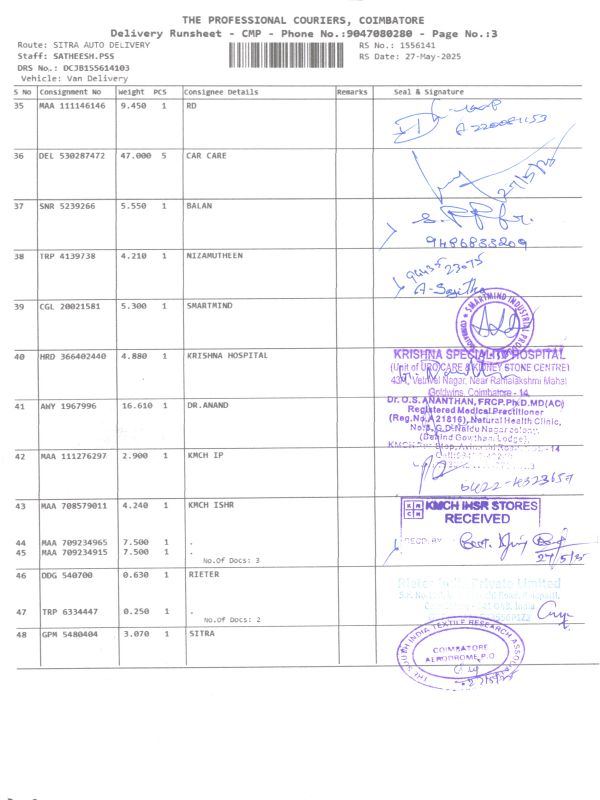 THE PROFESSIONAL COURIERS, COIMBATORE
Delivery Runsheet - CMP - Phone No.:9047080280 - Page No.:3
Route: SITRA AUTO DELIVERY
RS No.: 1556141
Staff: SATHEESH.PSS
RS Date: 27-May-2025
DRS No.: DCJB1556141O3
Vehicle: Van Delivery
S No Consignment No Weight PCS Consignee Details Remarks Seal & Signature
35 MAA 111146146 9.450 1 RD
A 220081153
36 DEL 530287472 47.000 5 CAR CARE
27/5/25
37 SNR 5239266 5.550 1 BALAN
9486833209
38 TRP 4139738 4.210 1 NIZAMUTHEEN
94435 23075
39 CGL 20021581 5.300 1 SMARTMIND
SMARTMIND INDUSTRIAL
40 HRD 366402440 4.880 1 KRISHNA HOSPITAL
KRISHNA SPECIALITY HOSPITAL
(Unit of UROCARE & KIDNEY STONE CENTRE)
Nagar, Near Ramalakshmi Mahal
Goldwins, Coimbatore - 14
41 AWY 1967996 16.610 1 DR.ANAND
Dr. O.S. ANANTHAN, FRCP.PhD.MD(AC)
Registered Medical Practitioner
(Reg.No.A 21816), Natural Health Clinic,
(Behind Gowtham Lodge),
42 MAA 111276297 2.900 1 KMCH IP
0422-4323659
43 MAA 708579011 4.240 1 KMCH ISHR
KMCH IHSR STORES
RECEIVED
44 MAA 709234965 7.500 1 .
45 MAA 709234915 7.500 1 .
RECD. BY
27/5/25
No.Of Docs: 3
46 DDG 540700 0.630 1 RIETER
Rieter India Private Limited
47 TRP 6334447 0.250 1 .
No.Of Docs: 2
48 GPM 5480404 3.070 1 SITRA
THE SOUTH INDIA TEXTILE RESEARCH ASSOCIATION
COIMBATORE
AERODROME P.O